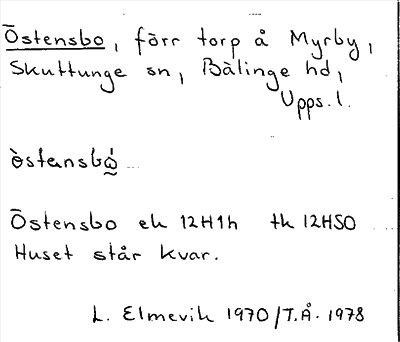 Östensbo, förr torp å Myrby,
Skuttunge sn, Bälinge hd,
Upps. l.
östensbo
Östensbo ek 12H1h tk 12HSO
Huset står kvar.
L. Elmevik 1970/T.Å. 1978